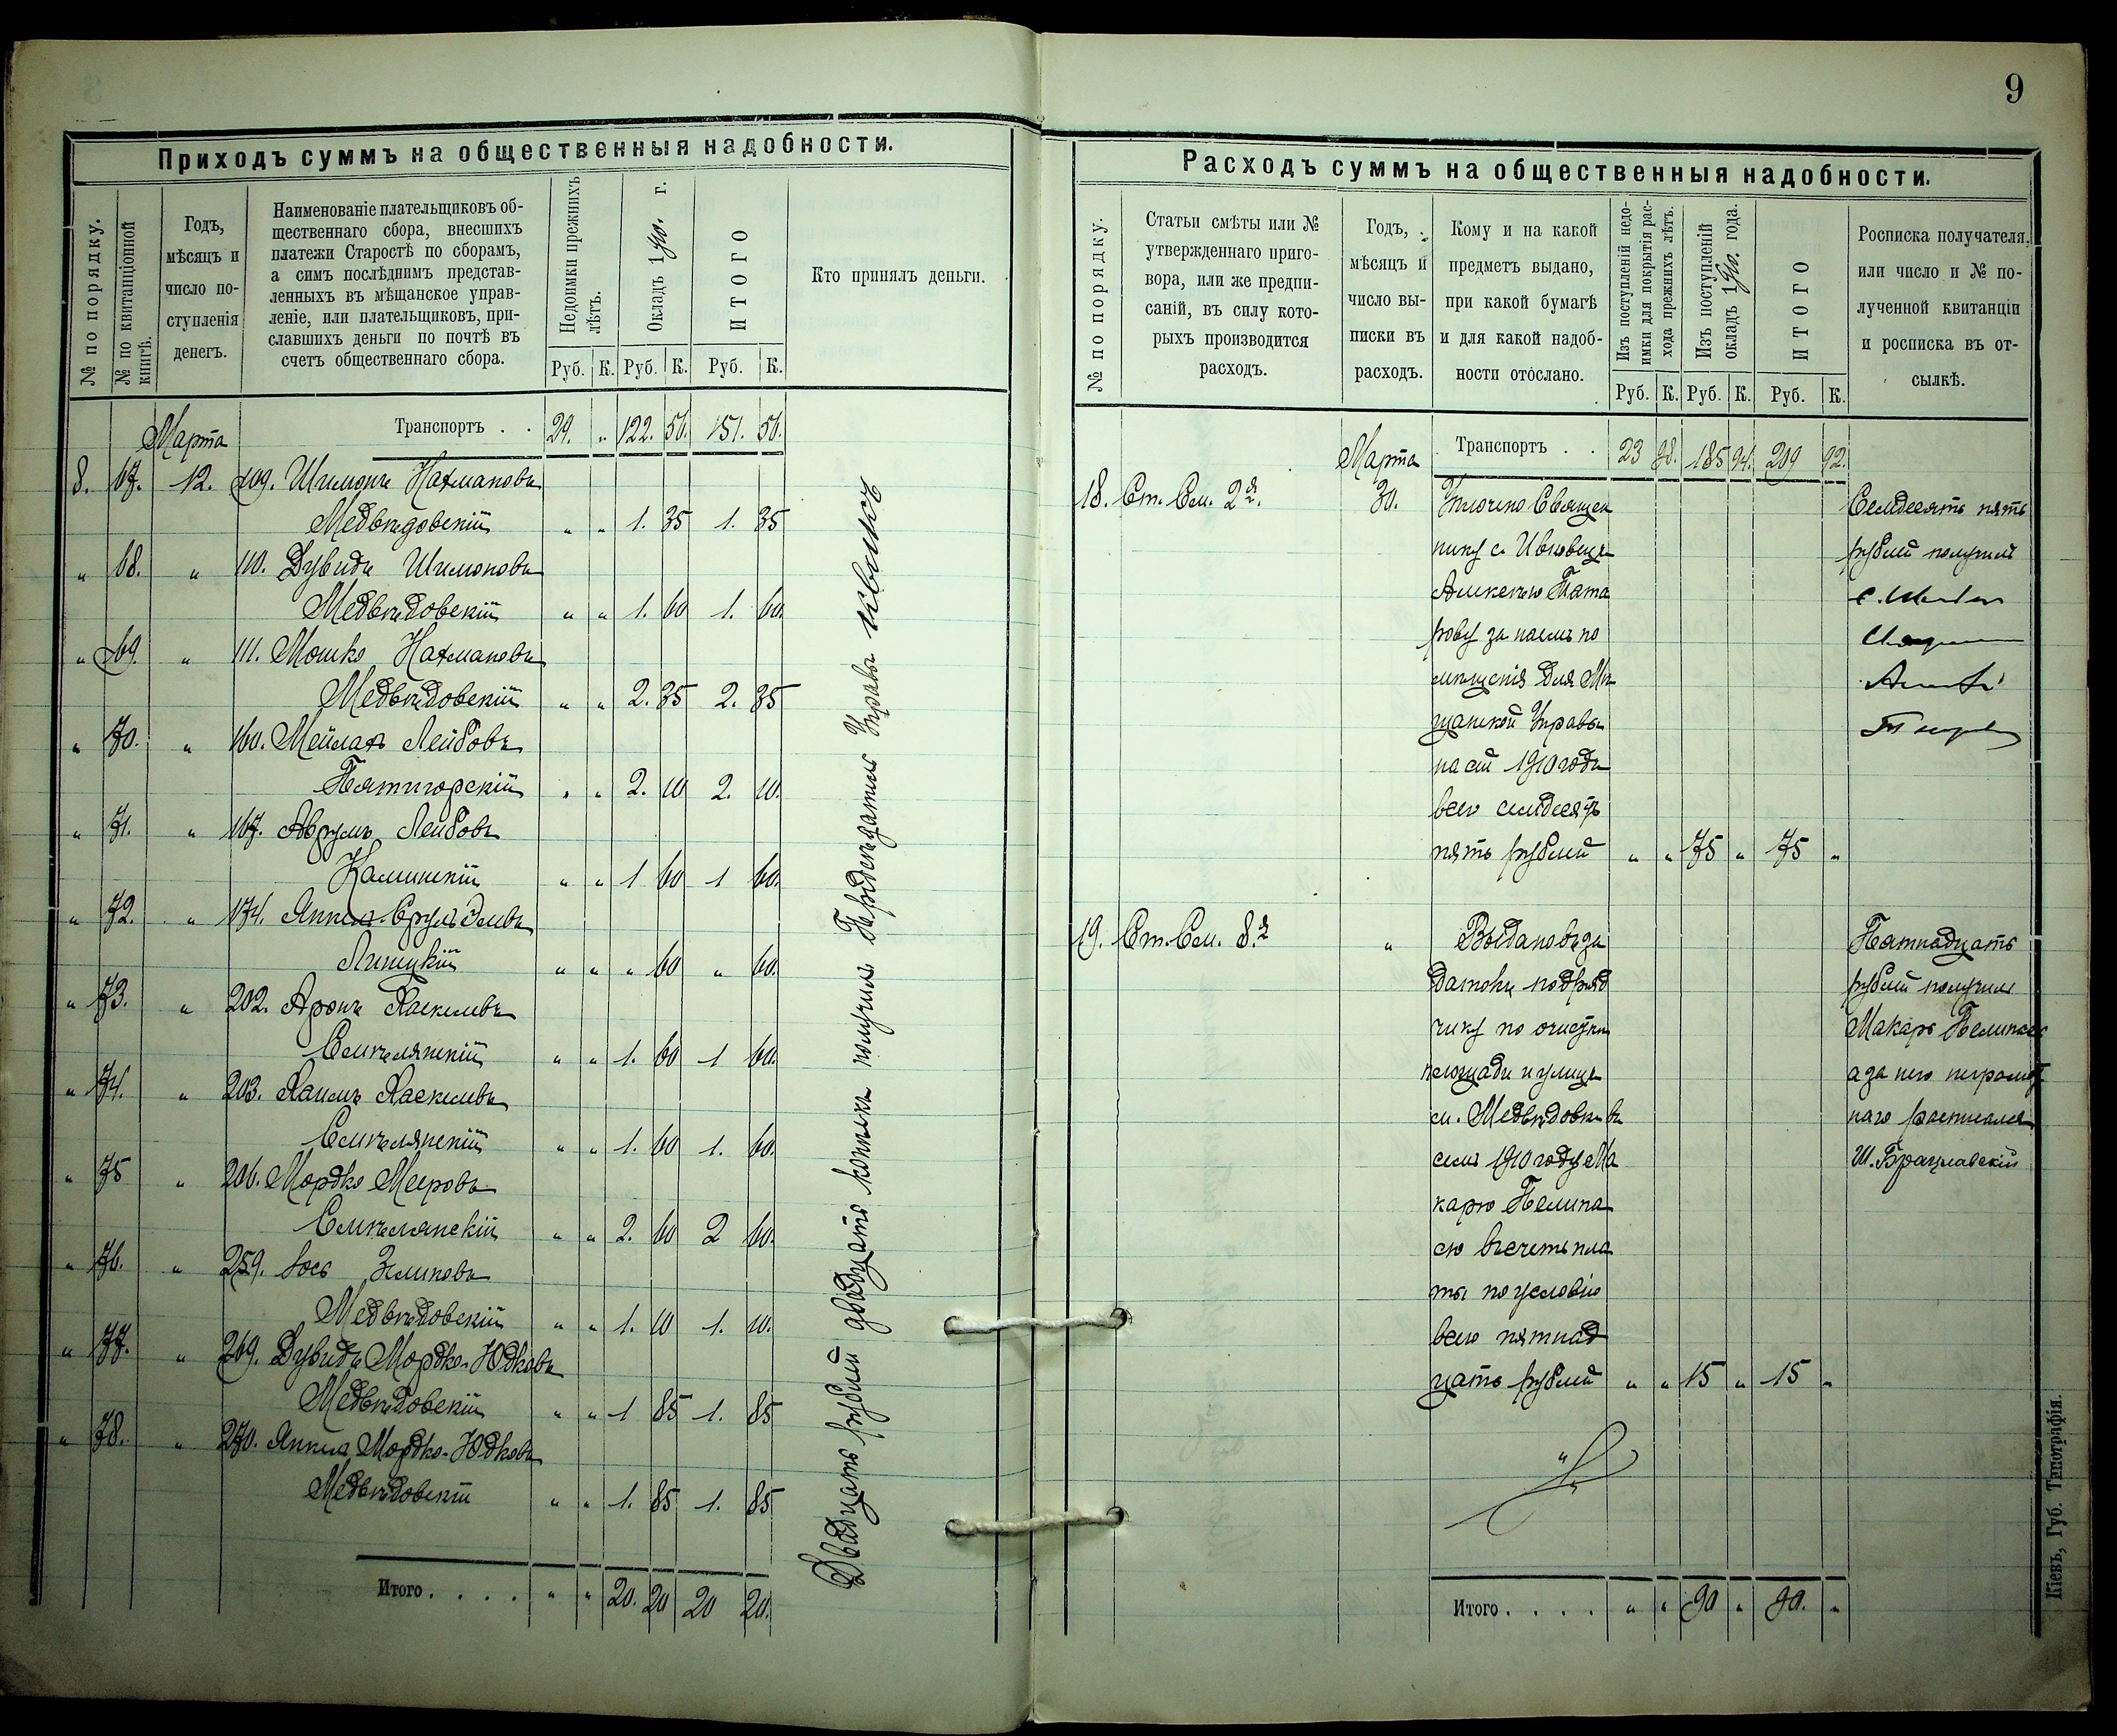 9
Приходъ суммъ на общественныя надобности.
№ по порядку.
№ по квитанціонной книгѣ.
Годъ,
мѣсяцъ и
число по-
ступленія
денегъ.
Наименованіе плательщиковъ об-
щественнаго сбора, внесшихъ
платежи Старостѣ по сборамъ,
а симъ послѣднимъ представ-
ленныхъ въ мѣщанское управ-
леніе, или плательщиковъ, при-
славшихъ деньги по почтѣ въ
счетъ общественнаго сбора.
Недоимки прежнихъ лѣтъ.
Окладъ 1910. г.
ИТОГО
Руб. К. Руб. К. Руб. К.
Кто принялъ деньги.
Марта Транспортъ . . 29. " 122. 50. 151. 50.
8. 67. 12. 109. Шимонъ Нахмановъ
Медвѣдовскій " " 1. 35 1. 35
" 68. " 110. Дувидъ Шимоновъ
Медвѣдовскій " " 1. 60 1. 60.
" 69. " 111. Мошко Нахмановъ
Медвѣдовскій " " 2. 35 2. 35
" 70. " 160. Мейлахъ Лейбовъ
Пятигорскій " " 2. 10 2. 10.
" 71. " 167. Аврумъ Лейбовъ
Каминскій " " 1 60 1 60.
" 72. " 174. Янкель-Сруль
" " " 60 " 60.
" 73. " 202. Аронъ Хаскелевъ
Смѣлянскій " " 1. 60 1 60.
" 74. " 203. Хаимъ Хаскелевъ
Смѣлянскій " " 1. 60 1. 60.
" 75 " 206. Мордко Мееровъ
Смѣлянскій " " 2. 60 2 60.
" 76. " 259. Іось Зеликовъ
Медвѣдовскій " " 1. 10 1. 10.
" 77. " 269. Дувидъ Мордко-Юдковъ
Медвѣдовскій " " 1 85 1. 85
" 78. " 270. Янкель Мордко-Юдковъ
Медвѣдовскій " " 1. 85 1. 85
Итого . . . . " " 20. 20 20 20.
Двадцать рублей двадцать копѣекъ получилъ Предсѣдатель Управы
Расходъ суммъ на общественныя надобности.
№ по порядку.
Статьи смѣты или №
утвержденнаго приго-
вора, или же предпи-
саній, въ силу кото-
рыхъ производится
расходъ.
Годъ,
мѣсяцъ и
число вы-
писки въ
расходъ.
Кому и на какой
предметъ выдано,
при какой бумагѣ
и для какой надоб-
ности отослано.
Изъ поступленій недо-
имки для покрытія рас-
хода прежнихъ лѣтъ.
Изъ поступленій
окладъ 1910. года.
ИТОГО
Руб. К. Руб. К. Руб. К.
Росписка получателя,
или число и № по-
лученной квитанціи
и росписка въ от-
сылкѣ.
Марта Транспортъ . . 23 98. 185 94. 209 92.
18. Ст. См. 2я. 30. Уплочено Священ
нику с. Ивковецъ
Алексѣю Тата
рову за наемъ по
мѣщенія для Мѣ
щанской Управы
на сей 1910 годъ
всего семдесятъ
пять рублей " " 75 " 75 "
Семдесятъ пять
рублей получилъ
19. Ст. См. 8я " Выдано въ за
датокъ подряд
чику по очисткѣ
площади и улицъ
м. Медвѣдовки въ
семъ 1910 году Ма
карю
въ счетъ пла
ты по условію
всего пятнад
цать рублей " " 15 " 15 "
Пятнадцать
рублей получилъ
Макаръ
а за него неграмот
наго расписался
Ш. Брацлавскій
Итого . . . . " " 90 " 90. "
Кіевъ, Губ. Типографія.